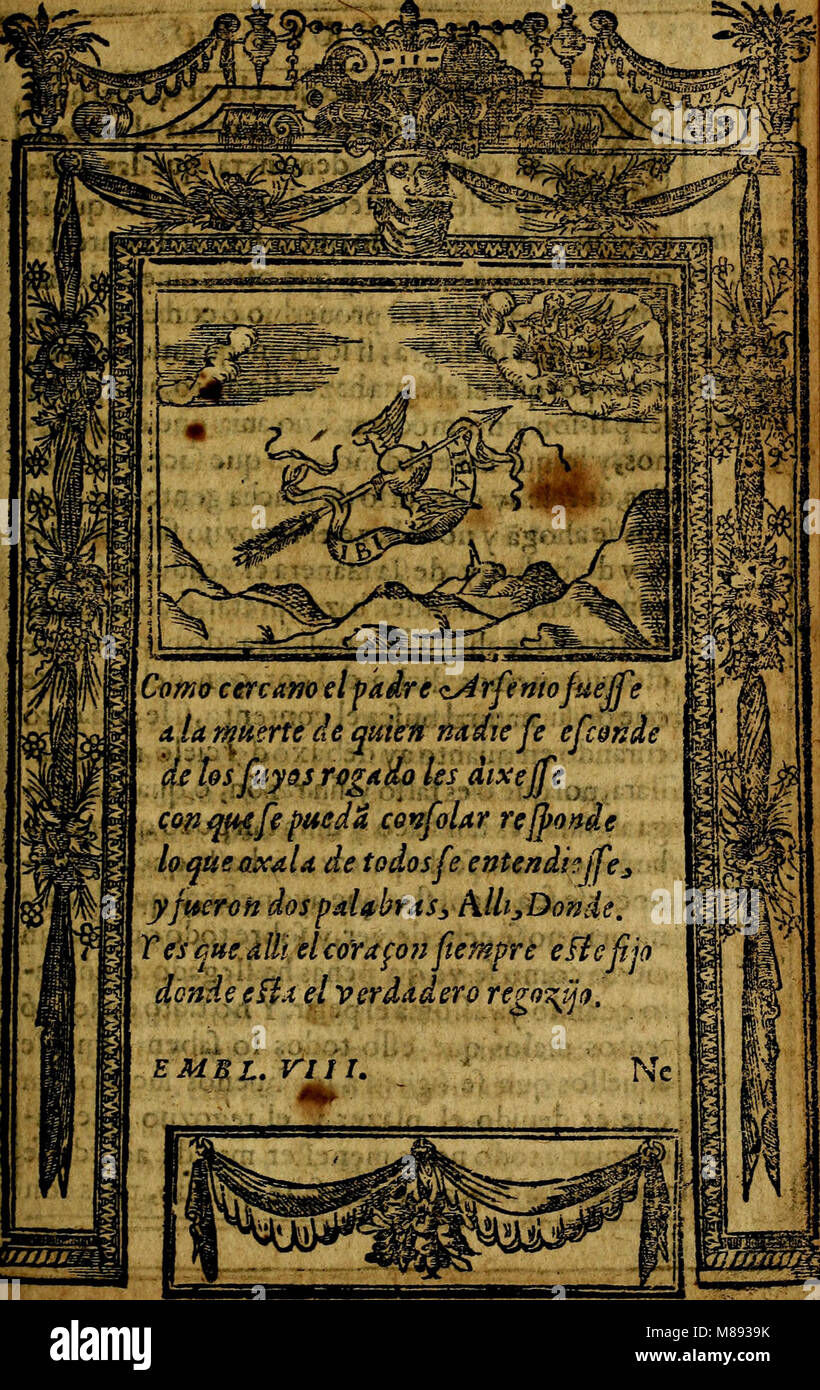 IBI
VBI
Como cercano el padre Arſenio fueſſe
a la muerte de quien nadie ſe eſconde
de los ſuyos rogado les dixeſſe
con que ſe puedã conſolar reſponde
lo que oxala de todos ſe entendieſſe,
y fueron dos palabras, Alli, Donde.
Y es que alli el coraçon ſiempre eſte fijo
donde eſta el verdadero regozijo.
EMBL. VIII. Ne
alamy
alamy
Image ID: M8939K
www.alamy.com